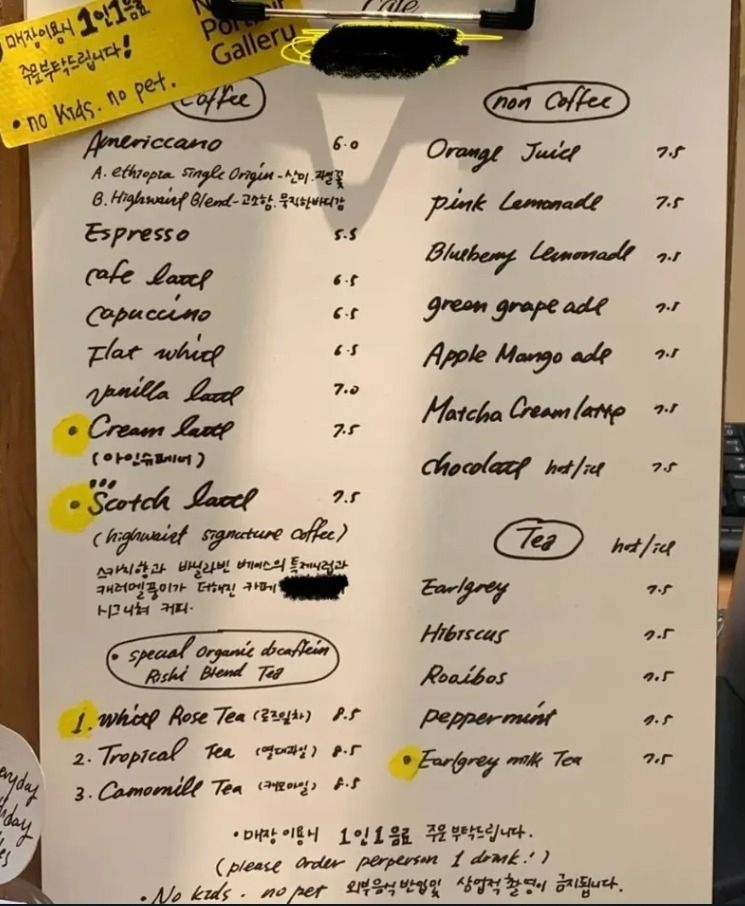 매장이용시 1인1음료
주문부탁드립니다!
• no kids. no pet.
Portrait
Gallery
Cafe
Coffee
Americcano 6.0
A. ethiopia single Origin - 산미.
B. Highwaist Blend - 고소함. 묵직한바디감
Espresso 5.5
cafe latte 6.5
Capuccino 6.5
Flat white 6.5
Vanilla latte 7.0
• Cream latte 7.5
(아인슈페너)
• Scotch latte 7.5
(highwaist signature coffee)
스카치향과 바닐라빈 베이스의 특제시럽과
캐러멜풍미가 더해진 카페
시그니쳐 커피.
• special organic decaffein
Rishi Blend Tea
1. white Rose Tea (로즈잎차) 8.5
2. Tropical Tea (열대과일) 8.5
3. Camomill Tea (캐모마일) 8.5
non Coffee
Orange Juice 7.5
pink Lemonade 7.5
Blueberry Lemonade 7.5
green grape ade 7.5
Apple Mango ade 7.5
Matcha Cream latte 7.5
chocolate hot/ice 7.5
Tea hot/ice
Earlgrey 7.5
Hibiscus 7.5
Rooibos 7.5
peppermint 7.5
• Earlgrey milk Tea 7.5
• 매장이용시 1인1음료 주문부탁드립니다.
(please order perperson 1 drink!)
• No kids. no pet 외부음식 반입및 상업적촬영이 금지됩니다.